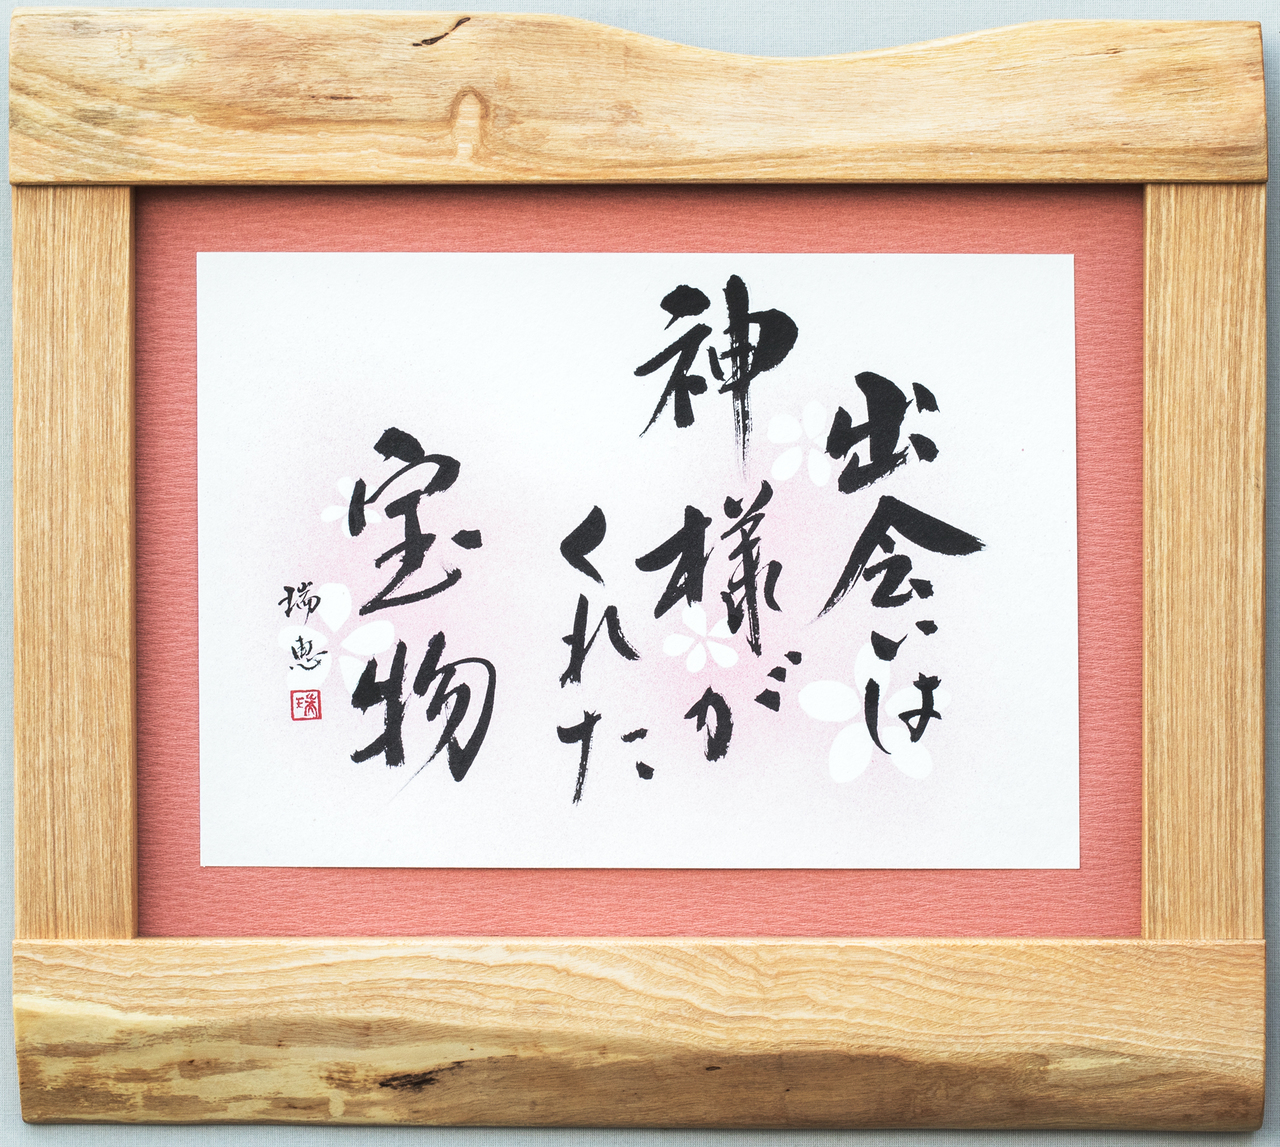 出会いは
神様が
くれた
宝物
瑞恵